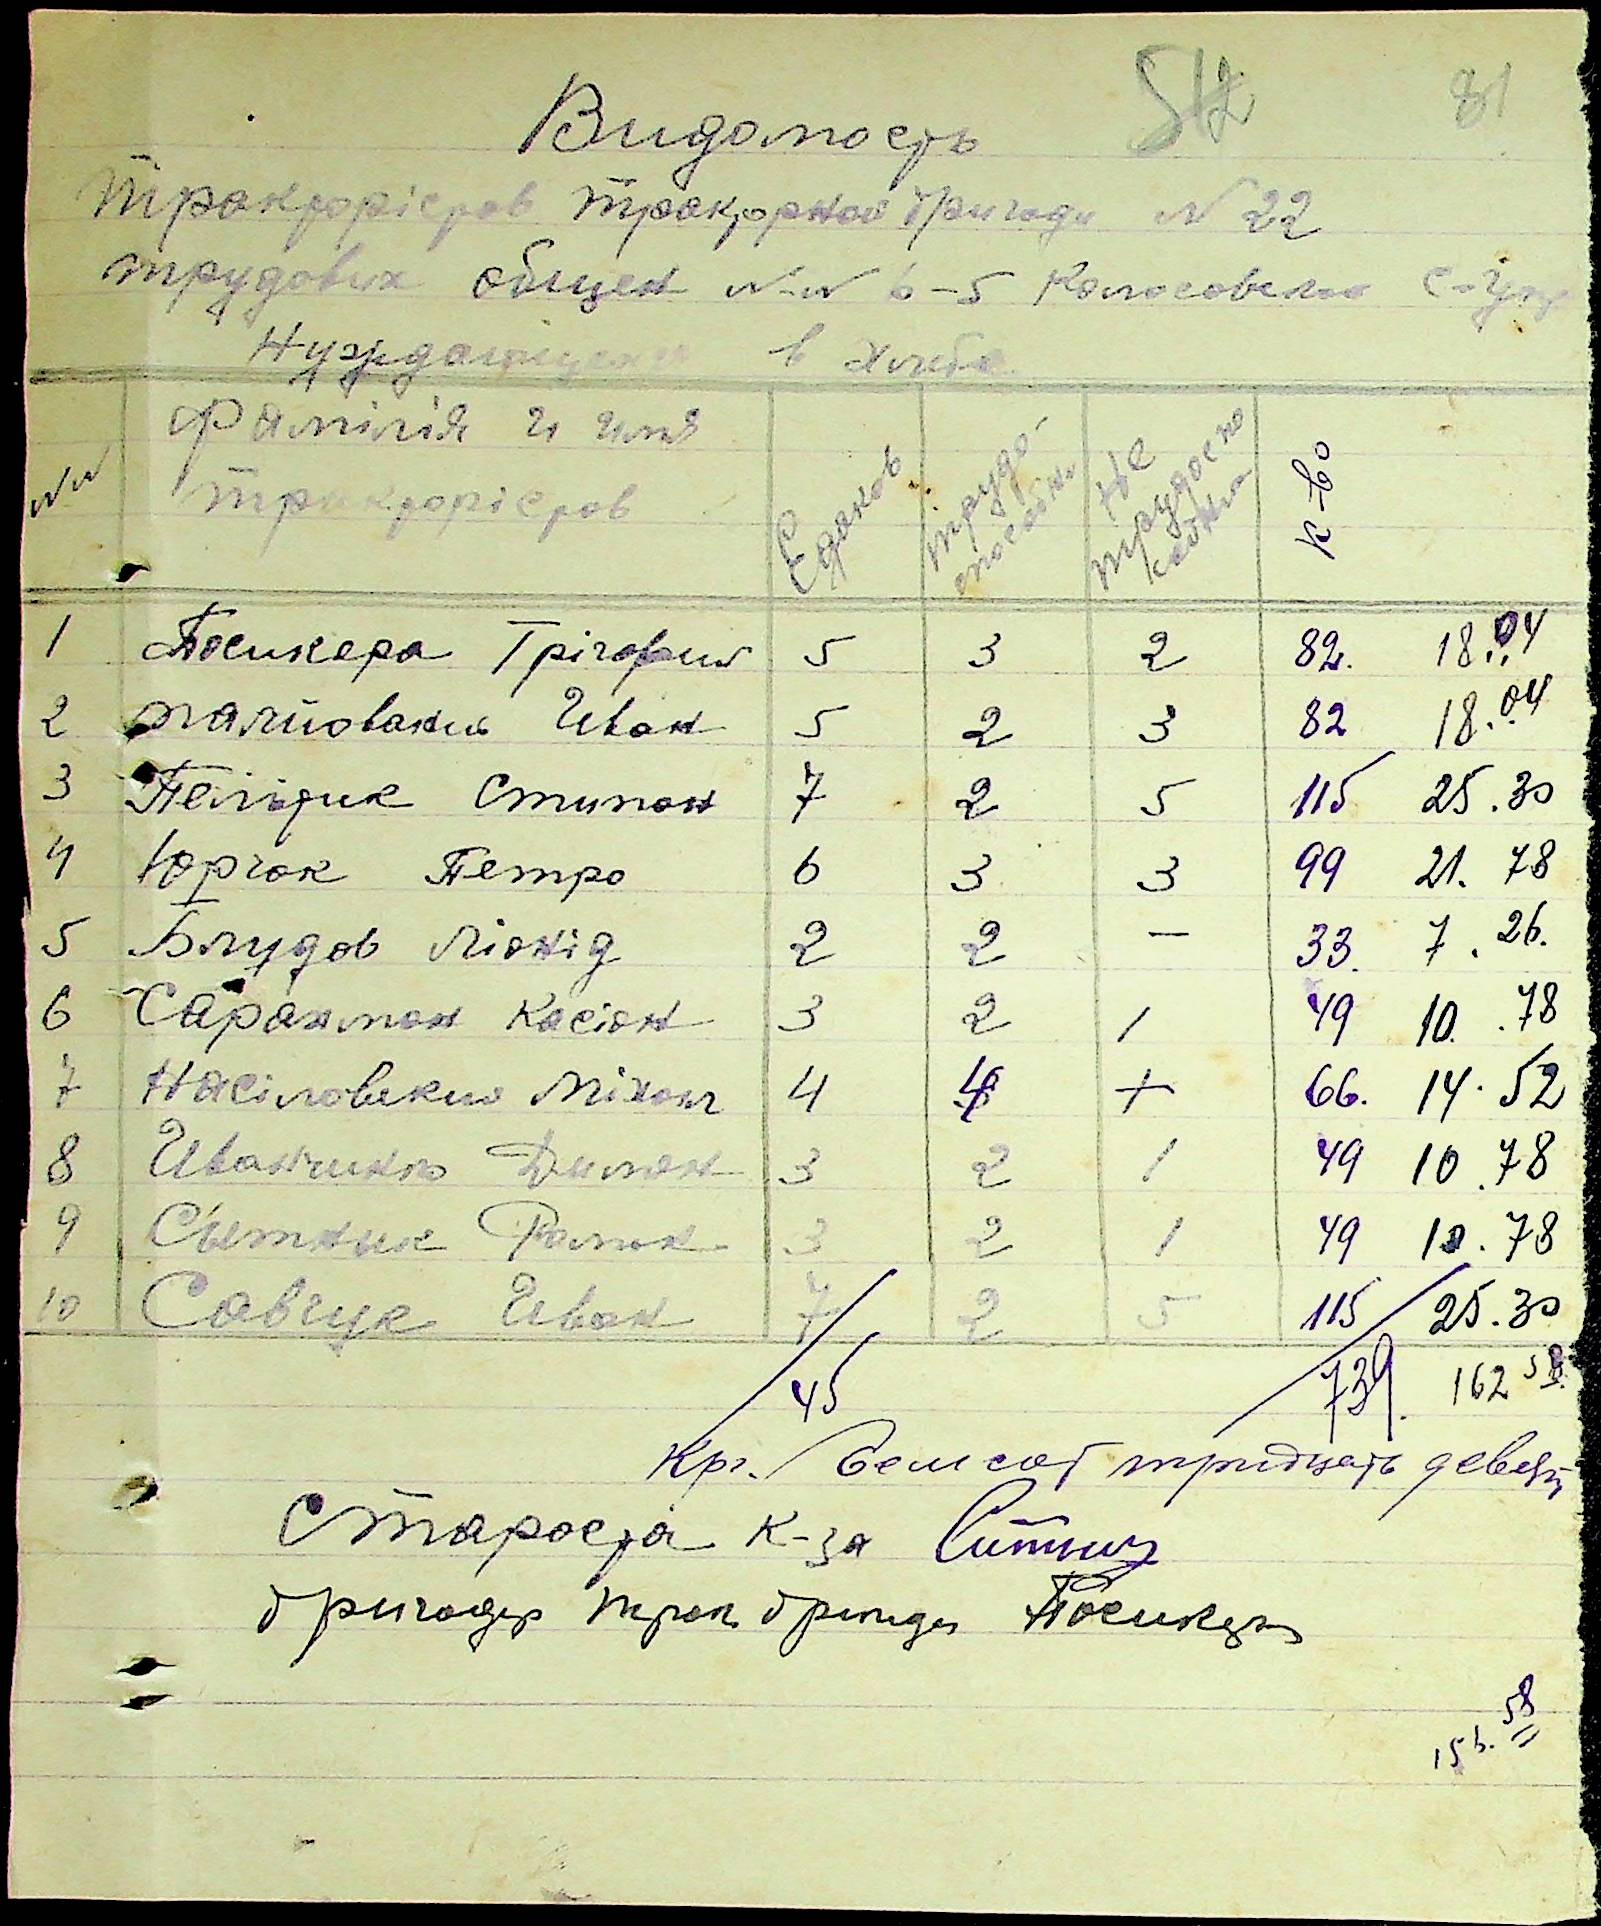 81
Видомость
Тракторістров тракторной бригади N 22
трудових общен N-N 6-5 Колосовского
Нуждающихся в хлибе
NN Фамілія и имя тракторістров Едоков трудо-способни Не трудоспособни к-во
1 Посикера Грігорий 5 3 2 82. 18.04
2 Иван 5 2 3 82 18.04
3 Стипан 7 2 5 115 25.30
4 Юрчак Петро 6 3 3 99 21.78
5 Блудов Ліонід 2 2 – 33. 7.26.
6 Сарахман Касіан 3 2 1 49 10.78
7 Насіловский Міхаил 4 4 + 66. 14.52
8 Иванчишко Диман 3 2 1 49 10.78
9 Сытник Роман 3 2 1 49 10.78
10 Савчук Иван 7 2 5 115 25.30
45 739. 162 58
Кгр. Семсот тридцать девять
Староста к-за Ситник
бригадір трак бригади Посикера
156.58